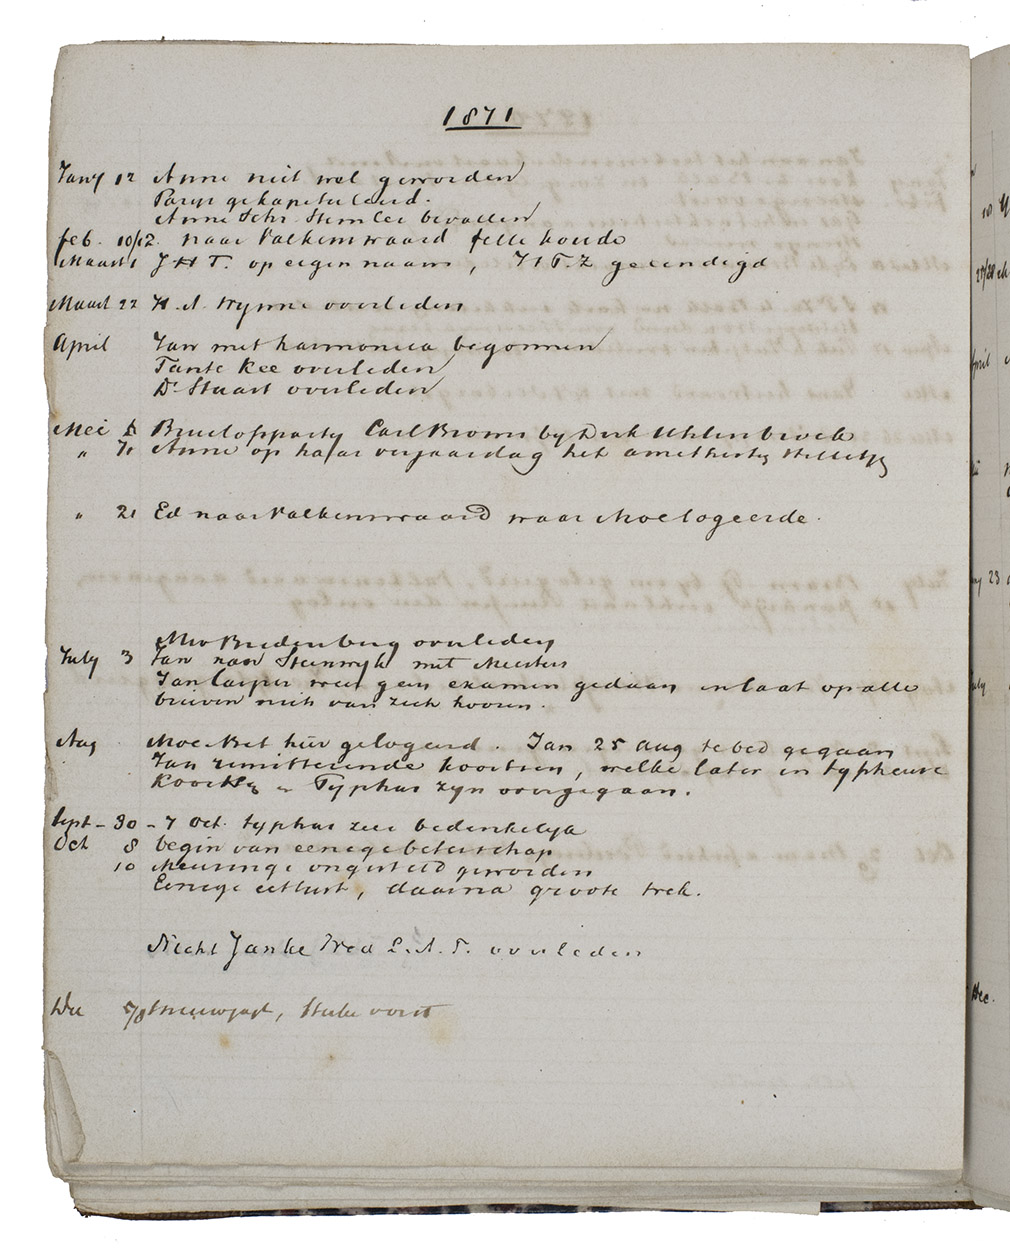 1871
Jany 12 Anne niet wel geworden
Parijs gekapituleerd.
Anne Schr. Stemler bevallen
feb. 10/12. naar Valkenswaard felle koude
Maart 1 J H T. op eigen naam, H T. Z geeindigd
Maart 22 H. A. Wynne overleden
April Jan met harmonica begonnen
Tante Kee overleden
Dr Stuart overleden
Mei Bruiloftparty Carl Broms by Dirk Uhlenbroek
" Anne op haar verjaardag het amethisten stelletje
" 21 Ed naar Valkenswaard waar Moe logeerde.
Mev Bredenberg overleden
July 3 Jan naar Steenwyk met Meesters
Jan Casper weer geen examen gedaan en laat op alle
brieven niets van zich hooren.
Aug Moe Bet hier gelogeerd. Jan 25 aug te bed gegaan
Jan remitteerende koortsen, welke later in typheuse
koortsen Typhus zyn overgegaan.
Sept - 30 - 7 Oct. typhus zeer bedenkelyk
Oct 8 begin van eenige beterschap
10 Meuringe ongesteld geworden
Eenige eetlust, daarna groote trek.
Nicht Janke Wed L. A. T. overleden
Dec Sneeuwjagt, sterke vorst